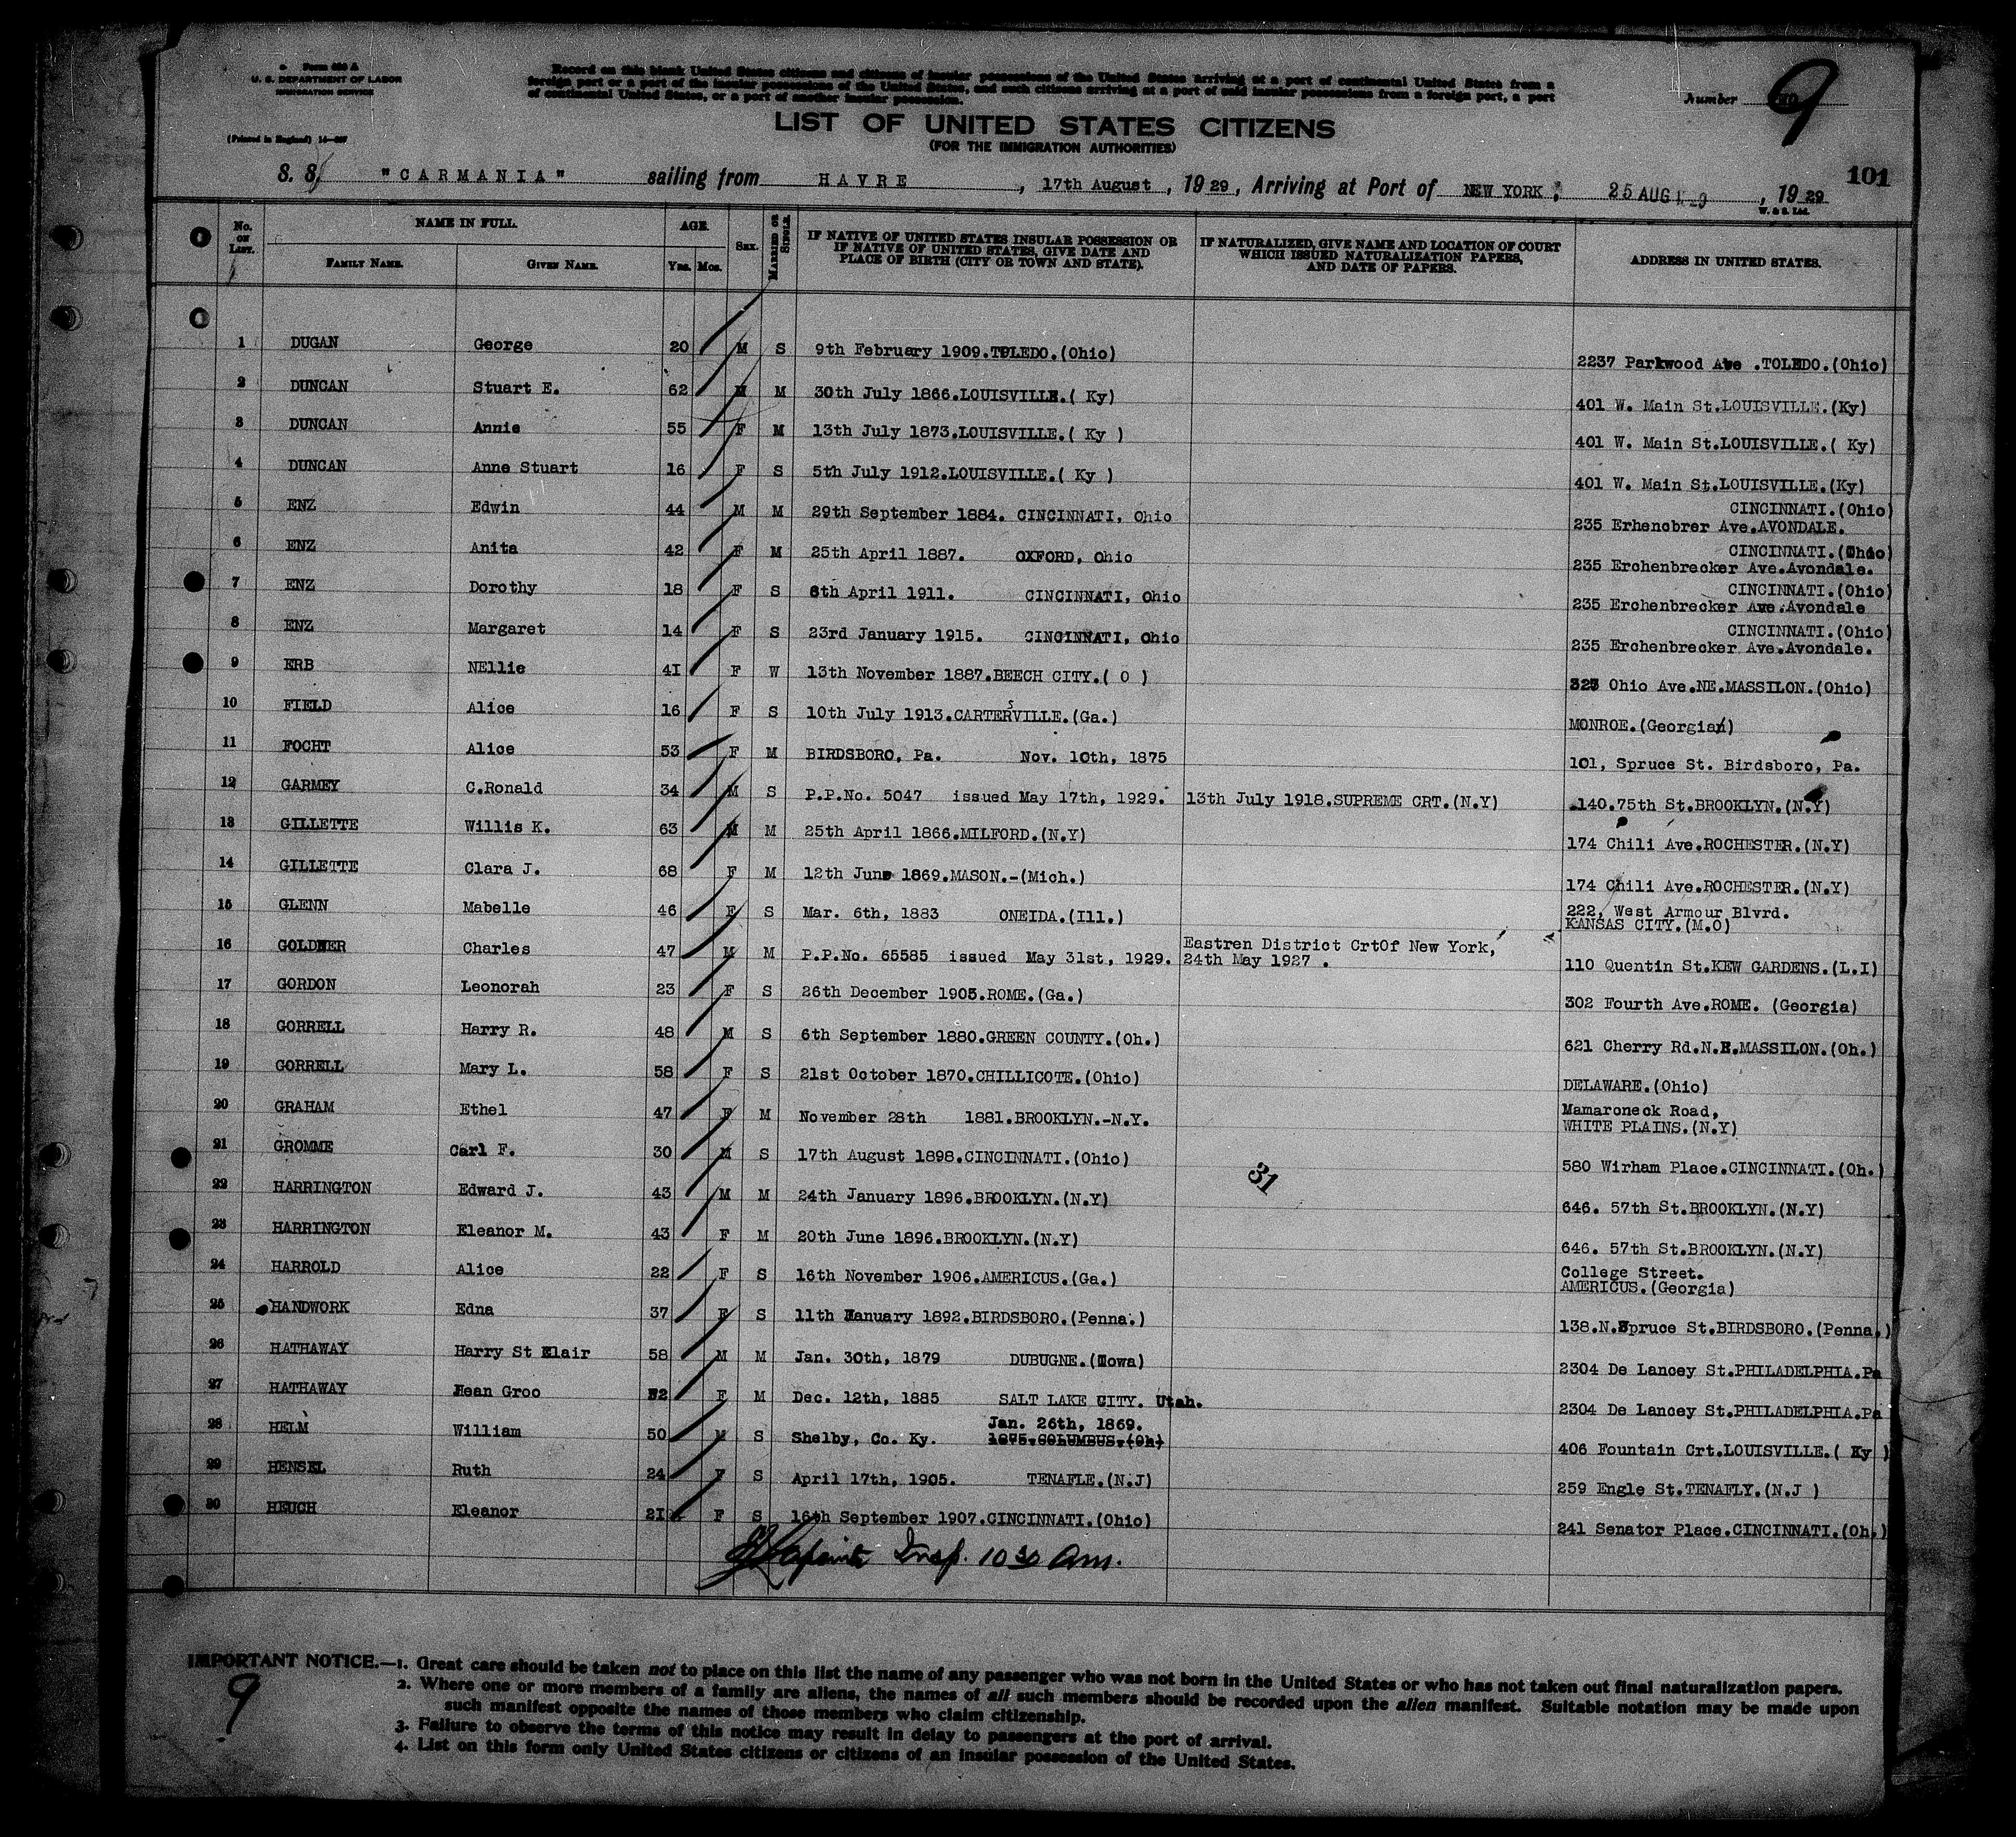 Form 630 A
U. S. DEPARTMENT OF LABOR
IMMIGRATION SERVICE
Record on this blank United States citizens and citizens of insular possessions of the United States arriving at a port of continental United States from a
foreign port or a port of the insular possessions of the United States, and such citizens arriving at a port of said insular possessions from a foreign port, a port
of continental United States, or a port of another insular possession.
Number 9
(Printed in England)
LIST OF UNITED STATES CITIZENS
(FOR THE IMMIGRATION AUTHORITIES)
101
S. S. "CARMANIA" sailing from HAVRE, 17th August, 1929, Arriving at Port of NEW YORK, 25 AUG 1929, 1929
W. & S. Ltd.
No. ON LIST. NAME IN FULL. FAMILY NAME. GIVEN NAME. AGE. Yrs. Mos. SEX. MARRIED OR SINGLE. IF NATIVE OF UNITED STATES INSULAR POSSESSION OR IF NATIVE OF UNITED STATES, GIVE DATE AND PLACE OF BIRTH (CITY OR TOWN AND STATE). IF NATURALIZED, GIVE NAME AND LOCATION OF COURT WHICH ISSUED NATURALIZATION PAPERS, AND DATE OF PAPERS. ADDRESS IN UNITED STATES.
1 DUGAN George 20 M S 9th February 1909.TOLEDO.(Ohio) 2237 Parkwood Ave .TOLEDO.(Ohio)
2 DUNCAN Stuart E. 62 M M 30th July 1866.LOUISVILLE.( Ky) 401 W. Main St.LOUISVILLE.(Ky)
3 DUNCAN Annie 55 F M 13th July 1873.LOUISVILLE.( Ky ) 401 W. Main St.LOUISVILLE.( Ky)
4 DUNCAN Anne Stuart 16 F S 5th July 1912.LOUISVILLE.( Ky ) 401 W. Main St.LOUISVILLE.(Ky)
5 ENZ Edwin 44 M M 29th September 1884. CINCINNATI, Ohio CINCINNATI.(Ohio)
235 Erhenobrer Ave.AVONDALE.
6 ENZ Anita 42 F M 25th April 1887. OXFORD, Ohio CINCINNATI.(Ohio)
235 Erchenbrecker Ave.Avondale.
7 ENZ Dorothy 18 F S 6th April 1911. CINCINNATI, Ohio CINCINNATI.(Ohio)
235 Erchenbrecker Ave.Avondale
8 ENZ Margaret 14 F S 23rd January 1915. CINCINNATI, Ohio CINCINNATI.(Ohio)
235 Erchenbrecker Ave.Avondale.
9 ERB NEllie 41 F W 13th November 1887.BEECH CITY.( O ) 323 Ohio Ave.NE.MASSILON.(Ohio)
10 FIELD Alice 16 F S 10th July 1913.CARTERSVILLE.(Ga.) MONROE.(Georgia)
11 FOCHT Alice 53 F M BIRDSBORO, Pa. Nov. 10th, 1875 101, Spruce St. Birdsboro, Pa.
12 GARMEY C.Ronald 34 M S P.P.No. 5047 issued May 17th, 1929. 13th July 1918.SUPREME CRT.(N.Y) 140.75th St.BROOKLYN.(N.Y)
13 GILLETTE Willis K. 63 M M 25th April 1866.MILFORD.(N.Y) 174 Chili Ave.ROCHESTER.(N.Y)
14 GILLETTE Clara J. 68 F M 12th June 1869.MASON.-(Mich.) 174 Chili Ave.ROCHESTER.(N.Y)
15 GLENN Mabelle 46 F S Mar. 6th, 1883 ONEIDA.(Ill.) 222, West Armour Blvrd.
KANSAS CITY.(M.O)
16 GOLDNER Charles 47 M M P.P.No. 65585 issued May 31st, 1929. Eastren District CrtOf New York,
24th May 1927 . 110 Quentin St.KEW GARDENS.(L.I)
17 GORDON Leonorah 23 F S 26th December 1905.ROME.(Ga.) 302 Fourth Ave.ROME. (Georgia)
18 GORRELL Harry R. 48 M S 6th September 1880.GREEN COUNTY.(Oh.) 621 Cherry Rd.N.E.MASSILON.(Oh.)
19 GORRELL Mary L. 58 F S 21st October 1870.CHILLICOTE.(Ohio) DELAWARE.(Ohio)
20 GRAHAM Ethel 47 F M November 28th 1881.BROOKLYN.-N.Y. Mamaroneck Road,
WHITE PLAINS.(N.Y)
21 GROMME Carl F. 30 M S 17th August 1898.CINCINNATI.(Ohio) 580 Wirham Place.CINCINNATI.(Oh.)
31
22 HARRINGTON Edward J. 43 M M 24th January 1896.BROOKLYN.(N.Y) 646. 57th St.BROOKLYN.(N.Y)
23 HARRINGTON Eleanor M. 43 F M 20th June 1896.BROOKLYN.(N.Y) 646. 57th St.BROOKLYN.(N.Y)
24 HARROLD Alice 22 F S 16th November 1906.AMERICUS.(Ga.) College Street.
AMERICUS.(Georgia)
25 HANDWORK Edna 37 F S 11th January 1892.BIRDSBORO.(Penna.) 138.N.Spruce St.BIRDSBORO.(Penna.)
26 HATHAWAY Harry St Clair 58 M M Jan. 30th, 1879 DUBUGNE.(Iowa) 2304 De Lancey St.PHILADELPHIA.Pa
27 HATHAWAY Jean Groo F M Dec. 12th, 1885 SALT LAKE CITY. Utah. 2304 De Lancey St.PHILADELPHIA.Pa
28 HELM William 50 M S Shelby, Co. Ky. Jan. 26th, 1869.
1875.COLUMBUS.(Oh) 406 Fountain Crt.LOUISVILLE.( Ky )
29 HENSEL Ruth 24 F S April 17th, 1905. TENAFLE.(N.J) 259 Engle St.TENAFLY.(N.J )
30 HEUCH Eleanor 21 F S 16th September 1907.CINCINNATI.(Ohio) 241 Senator Place.CINCINNATI.(Oh.)
Insp. 10 30 Am.
IMPORTANT NOTICE.—1. Great care should be taken not to place on this list the name of any passenger who was not born in the United States or who has not taken out final naturalization papers.
2. Where one or more members of a family are aliens, the names of all such members should be recorded upon the alien manifest. Suitable notation may be made upon
such manifest opposite the names of those members who claim citizenship.
3. Failure to observe the terms of this notice may result in delay to passengers at the port of arrival.
4. List on this form only United States citizens or citizens of an insular possession of the United States.
9